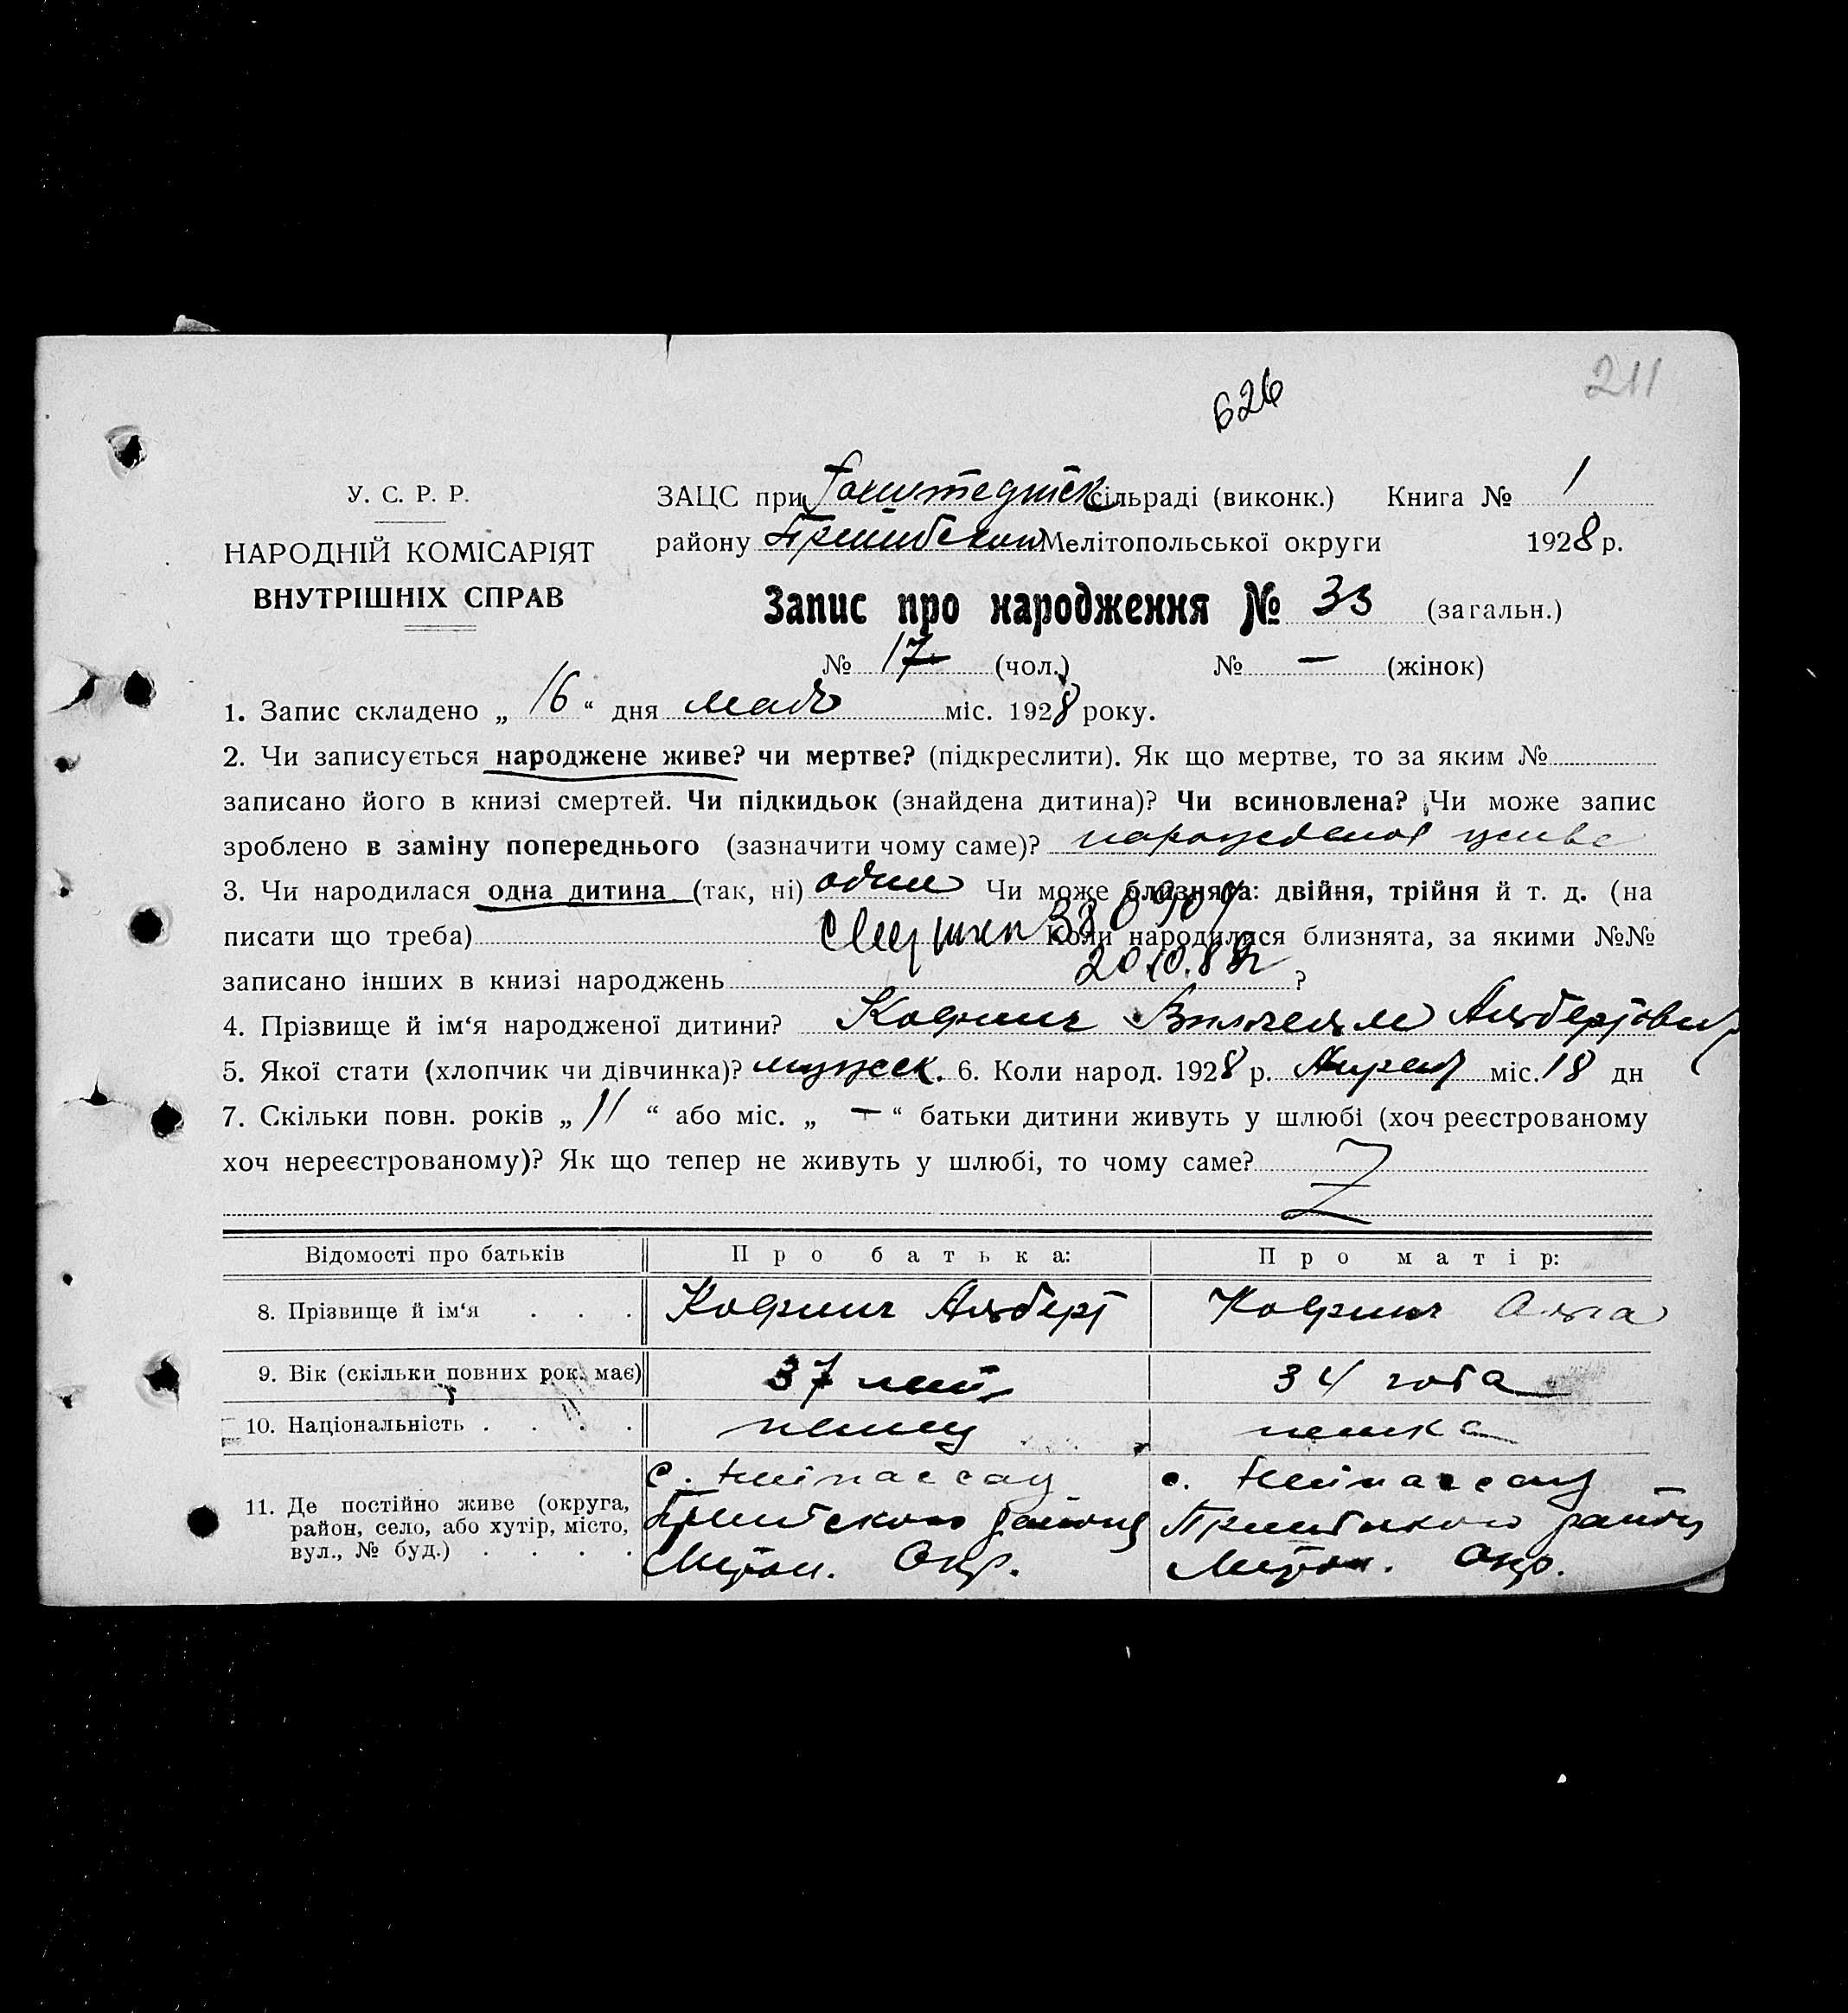 211
626
У. С. Р. Р.
НАРОДНІЙ КОМІСАРІЯТ
ВНУТРІШНІХ СПРАВ
ЗАЦС при сільраді (виконк.) Книга № 1
району Пришибском Мелітопольської округи 1928 р.
Запис про народження № 33 (загальн.)
№ 17 (чол.) № — (жінок)
1. Запис складено „ 16 “ дня мая міс. 1928 року.
2. Чи записується народжене живе? чи мертве? (підкреслити). Як що мертве, то за яким №
записано його в книзі смертей. Чи підкидьок (знайдена дитина)? Чи всиновлена? Чи може запис
зроблено в заміну попереднього (зазначити чому саме)?
3. Чи народилася одна дитина (так, ні) один Чи може близнята: двійня, трійня й т. д. (на
писати що треба) Коли народилася близнята, за якими №№
записано інших в книзі народжень 20.10.88г ?
4. Прізвище й ім‘я народженої дитини? Альбертович
5. Якої стати (хлопчик чи дівчинка)? мужск. 6. Коли народ. 1928 р. Апрель міс. 18 дн
7. Скільки повн. років „ 11 “ або міс. „ — “ батьки дитини живуть у шлюбі (хоч реєстрованому
хоч нереєстрованому)? Як що тепер не живуть у шлюбі, то чому саме? Z
Відомості про батьків Про батька: Про матір:
8. Прізвище й ім‘я . . . Альберт
9. Вік (скільки повних рок. має) 37 лет 34 года
10. Національність . . . . немец немка
11. Де постійно живе (округа,
район, село, або хутір, місто,
вул., № буд.) . . . .
с. Нейнассау с. Нейнассау
Пришибского района Пришибского района
Мелитоп. Окр. Мелитоп. Окр.